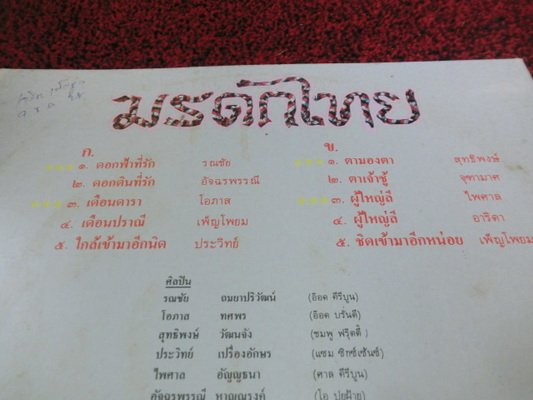 มรดกไทย
ก.
๑. ดอกฟ้าที่รัก รณชัย
๒. ดอกดินที่รัก อัจฉรพรรณี
๓. เดือนดารา โอภาส
๔. เดือนปราณี เพ็ญโพยม
๕. ใกล้เข้ามาอีกนิด ประวิทย์
ข.
๑. ตามองตา สุทธิพงษ์
๒. ตาเจ้าชู้ จุฑามาศ
๓. ผู้ใหญ่ลี ไพศาล
๔. ผู้ใหญ่ลี อาริดา
๕. ชิดเข้ามาอีกหน่อย เพ็ญโพยม
ศิลปิน
รณชัย ถมยาปริวัฒน์ (อ๊อด คีรีบูน)
โอภาส ทศพร (อ๊อด บรั่นดี)
สุทธิพงษ์ วัฒนจัง (ชมพู ฟรุ๊ตตี้)
ประวิทย์ เปรื่องอักษร (แซม ซิกซ์เซ้นซ์)
ไพศาล อัญญธนา (ศาล คีรีบูน)
อัจฉรพรรณี หาญณรงค์